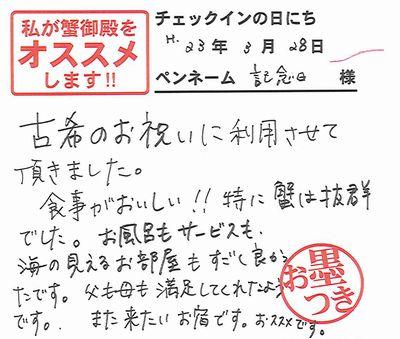 私が蟹御殿を
オススメ
します!!
チェックインの日にち
H. 23年 3月 28日
ペンネーム 記念日 様
古希のお祝いに利用させて
頂きました。
食事がおいしい!! 特に蟹は抜群
でした。お風呂もサービスも、
海の見えるお部屋もすごく良かっ
たです。父も母も満足してくれたよう
です。 また来たいお宿です。おススメです。
お墨
つき